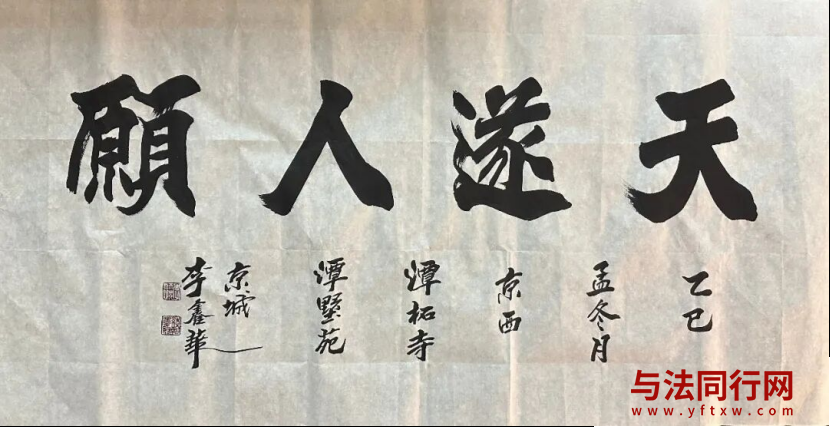 天遂人願
乙巳
孟冬月
京西
潭柘寺
潭墅苑
京城
李鑫華
与法同行网
www.yftxw.com